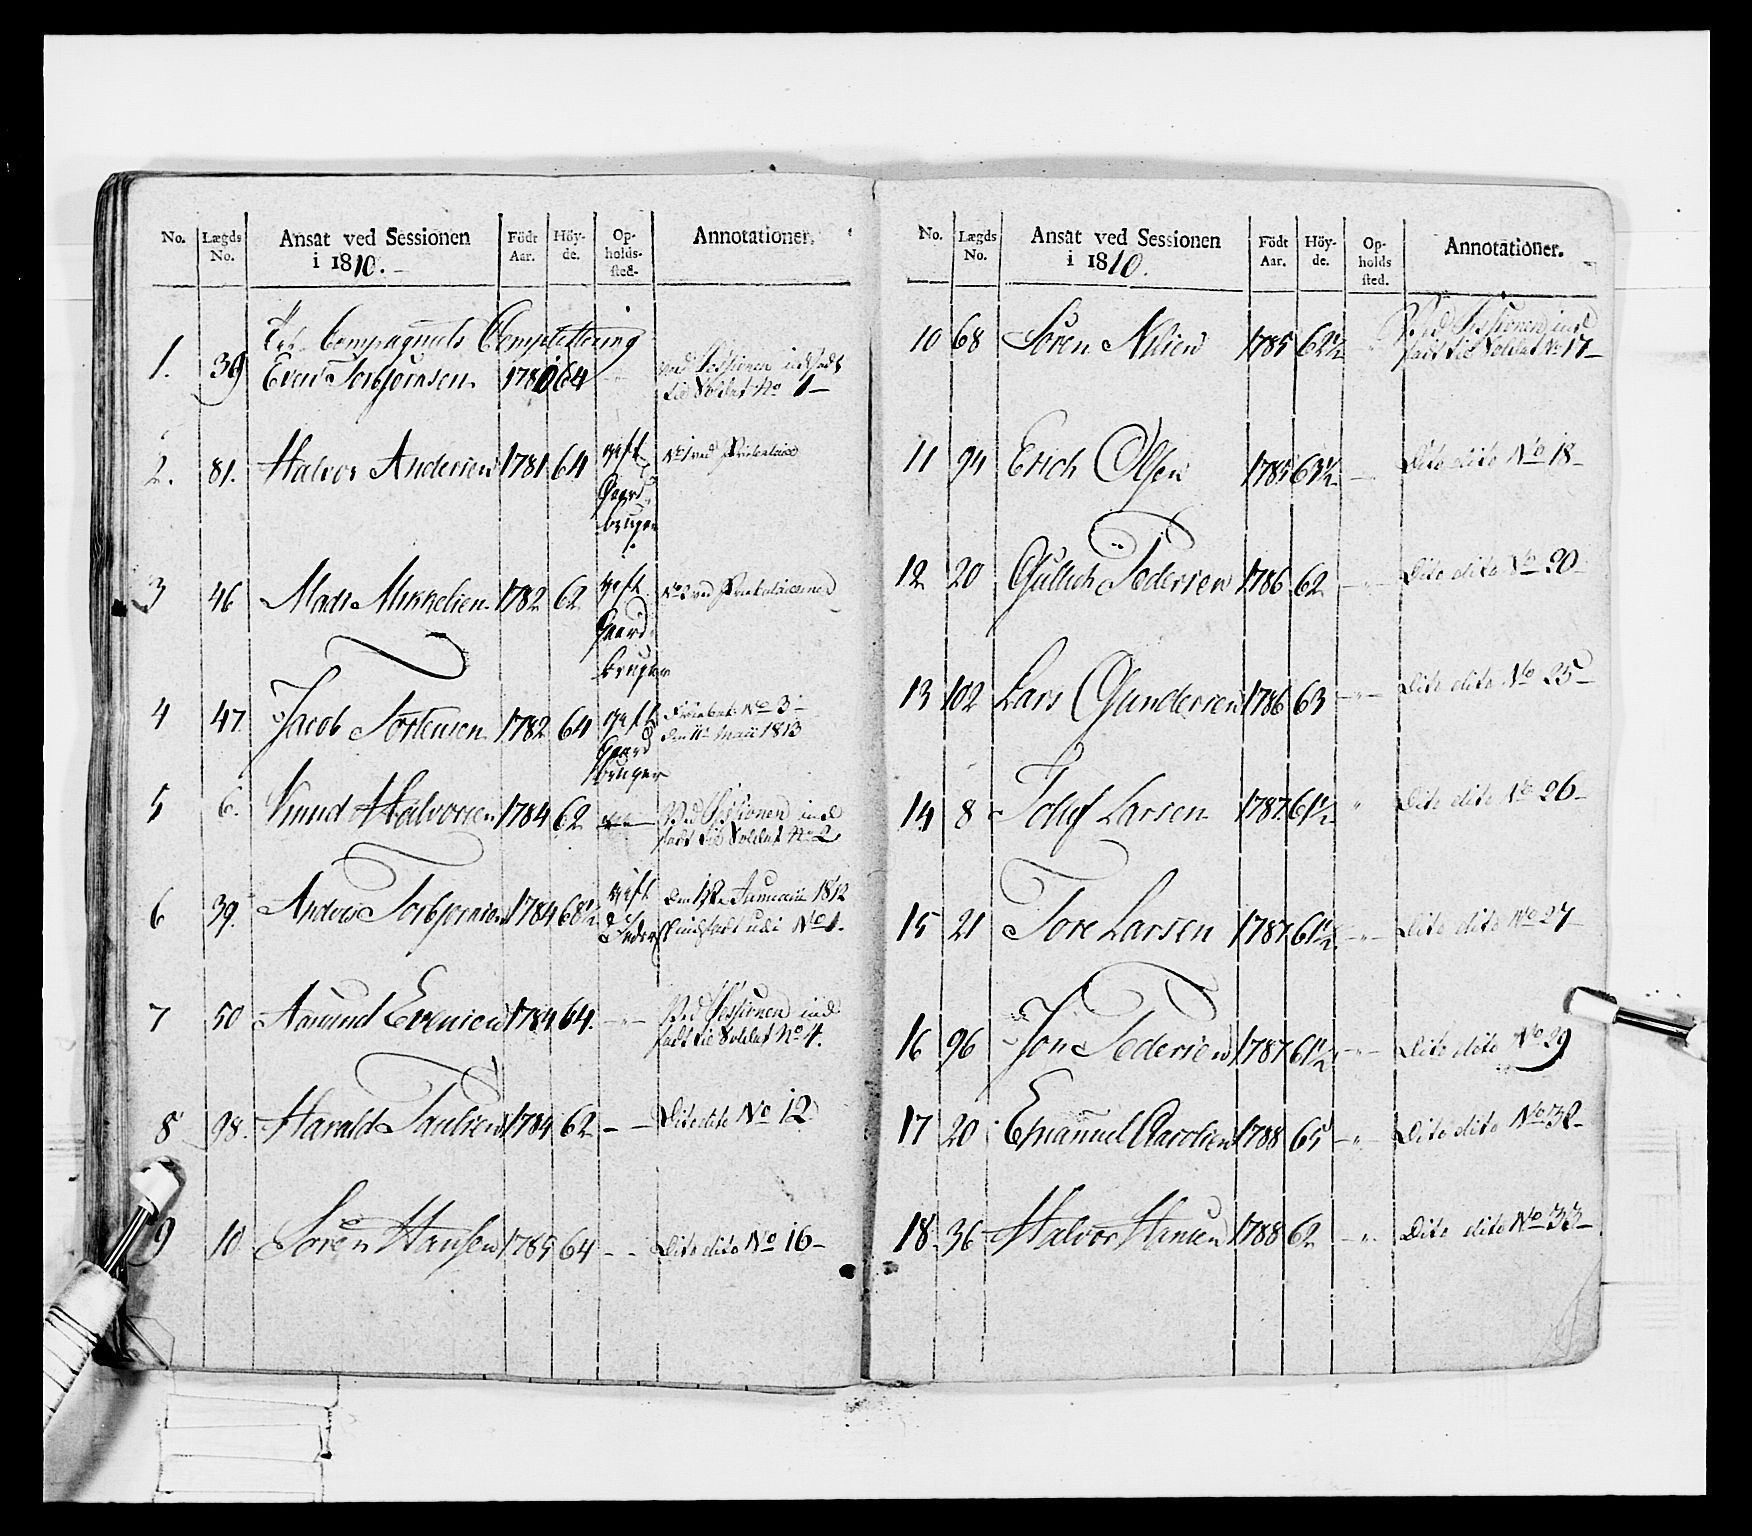 No. Lægds No. Ansat ved Sessionen i 1810. Födt Aar. Höyde. Opholdssted. Annotationer.
Til Compagniets Complettering
1. 39 Even Torbjörnsen 1780 64 Ved Sessionen indsadt
til Soldat No 1
2. 81. Halvor Andersen 1781 64 gift No 1 ved
Gaard
bruger
3 46 Mads Mikkelsen 1782 62 gift No 2 ved
Gaard
bruger
4 47 Jacob Tortensen 1782 64 gift No 3
Gaard den 11te Maii 1813
bruger
5 6. Knud Halvorsen 1784 62 Ved Sessionen ind
sadt til Soldat No 2
6 39. Anders Torbjörnsen 1784 68½ gift den 12te Januarii 1812
indsadt udi No 1.
7 50 Amund Evensen 1784 64. Ved Sessionen ind
sadt til Soldat No 4.
8 98. Harald Paulsen 1784 62 Dito dito No 12
9 10 Sören Hansen 1785 64 Dito dito No 16
No. Lægds No. Ansat ved Sessionen i 1810. Födt Aar. Höyde. Opholds sted. Annotationer.
10 68 Sören Nilsen 1785 62½ Ved Sessionen ind
sadt til Soldat No 17
11 94 Erich Olsen 1785 63½ Dito dito No 18
12 20 Gullich Pedersen 1786 62 Dito dito No 20
13 102 Lars Gundersen 1786 63 Dito dito No 25
14 8 Toluf Larsen 1787 61½ Dito dito No 26
15 21 Tore Larsen 1787 61½ Dito dito No 27
16 96 Jon Pedersen 1787 61½ Dito dito No 29
17 20 Emanuel Carolsen 1788 65 Dito dito No 32
18 36 Halvor Hansen 1788 62 Dito dito No 33